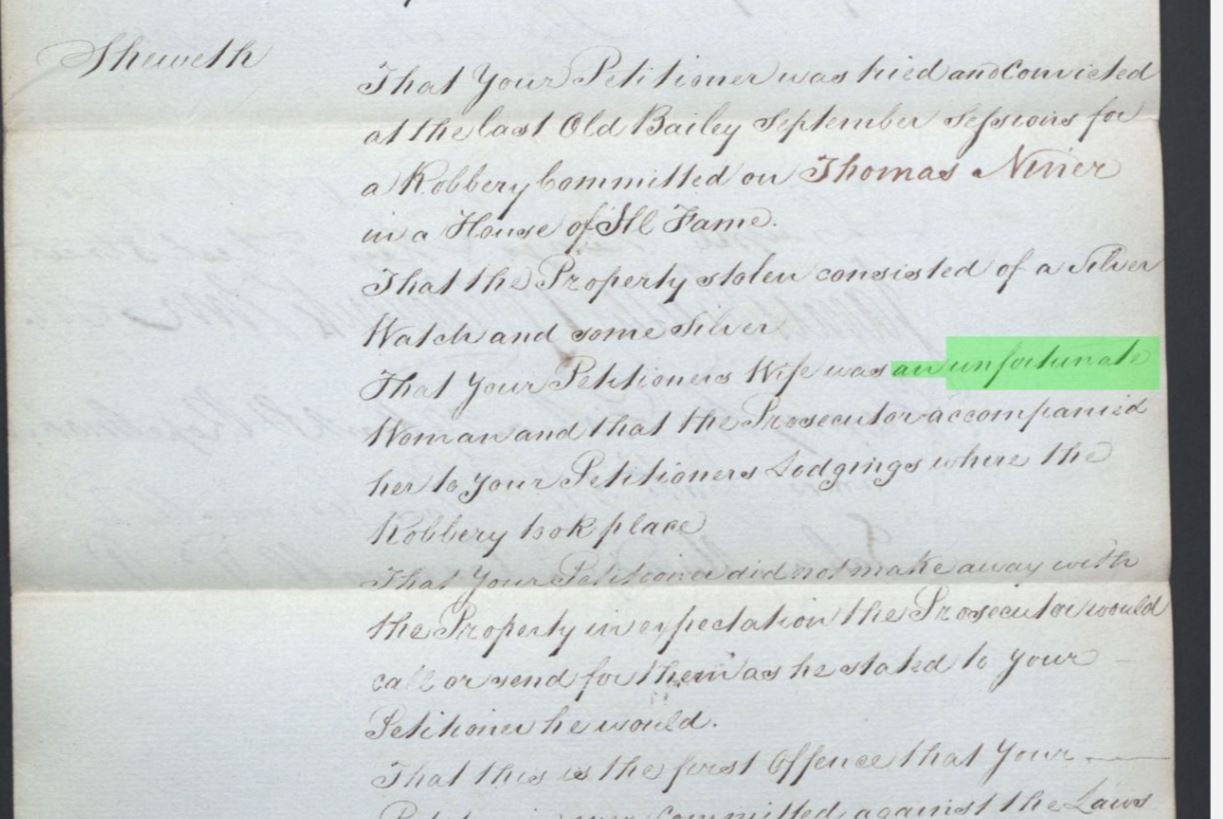 Sheweth
That Your Petitioner was tried and Convicted
at the last Old Bailey September Sessions for
a Robbery Committed on Thomas Niner
in a House of Ill Fame.
That the Property stolen consisted of a Silver
Watch and some Silver
That Your Petitioners Wife was an unfortunate
Woman and that the Prosecutor accompanied
her to Your Petitioners Lodgings where the
Robbery took place
That Your Petitioner did not make away with
the Property in expectation the Prosecutor would
call or send for them as he stated to Your
Petitioner he would.
That this is the first Offence that Your
committed against the Laws